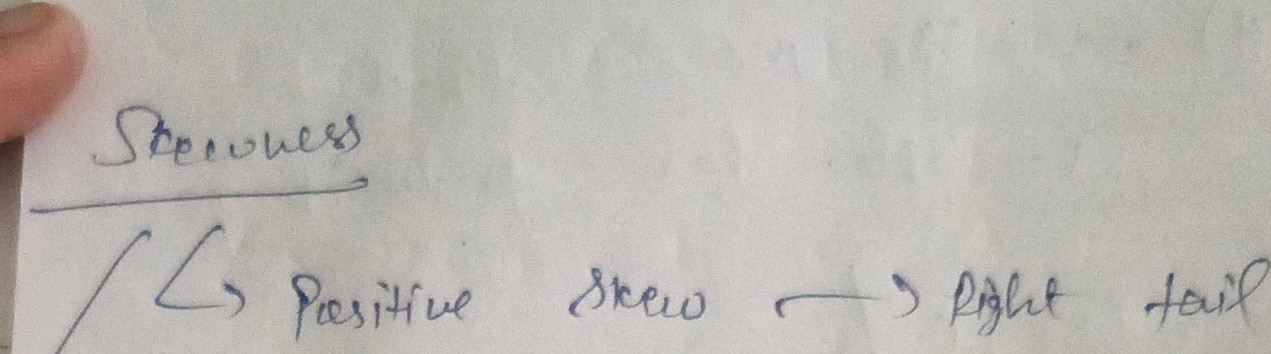 Skewness
↳ Positive skew → Right tail